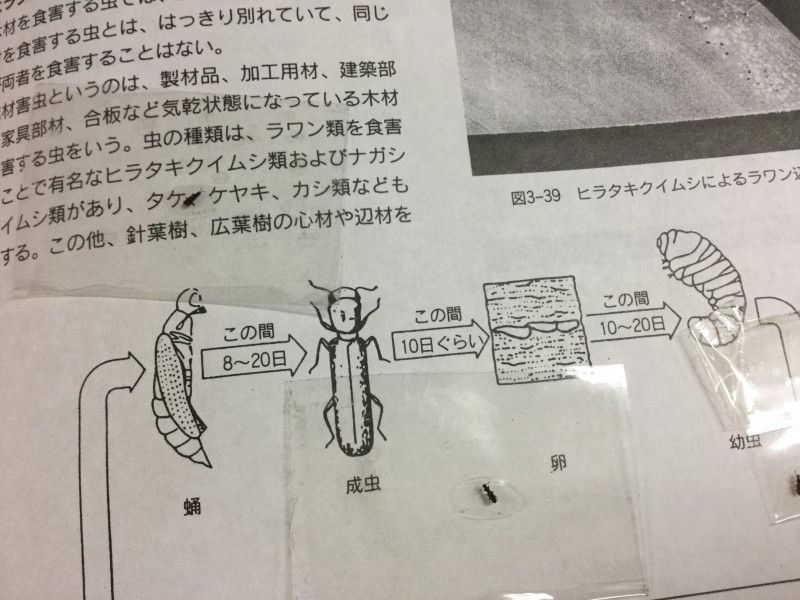 材を食害する虫では、
を食害する虫とは、はっきり別れていて、同じ
両者を食害することはない。
材害虫というのは、製材品、加工用材、建築部
家具部材、合板など気乾状態になっている木材
害する虫をいう。虫の種類は、ラワン類を食害
ことで有名なヒラタキクイムシ類およびナガシ
イムシ類があり、タケ ケヤキ、カシ類なども
する。この他、針葉樹、広葉樹の心材や辺材を
図3-39 ヒラタキクイムシによるラワン辺
この間
8〜20日
この間
10日ぐらい
この間
10〜20日
蛹
成虫
卵
幼虫